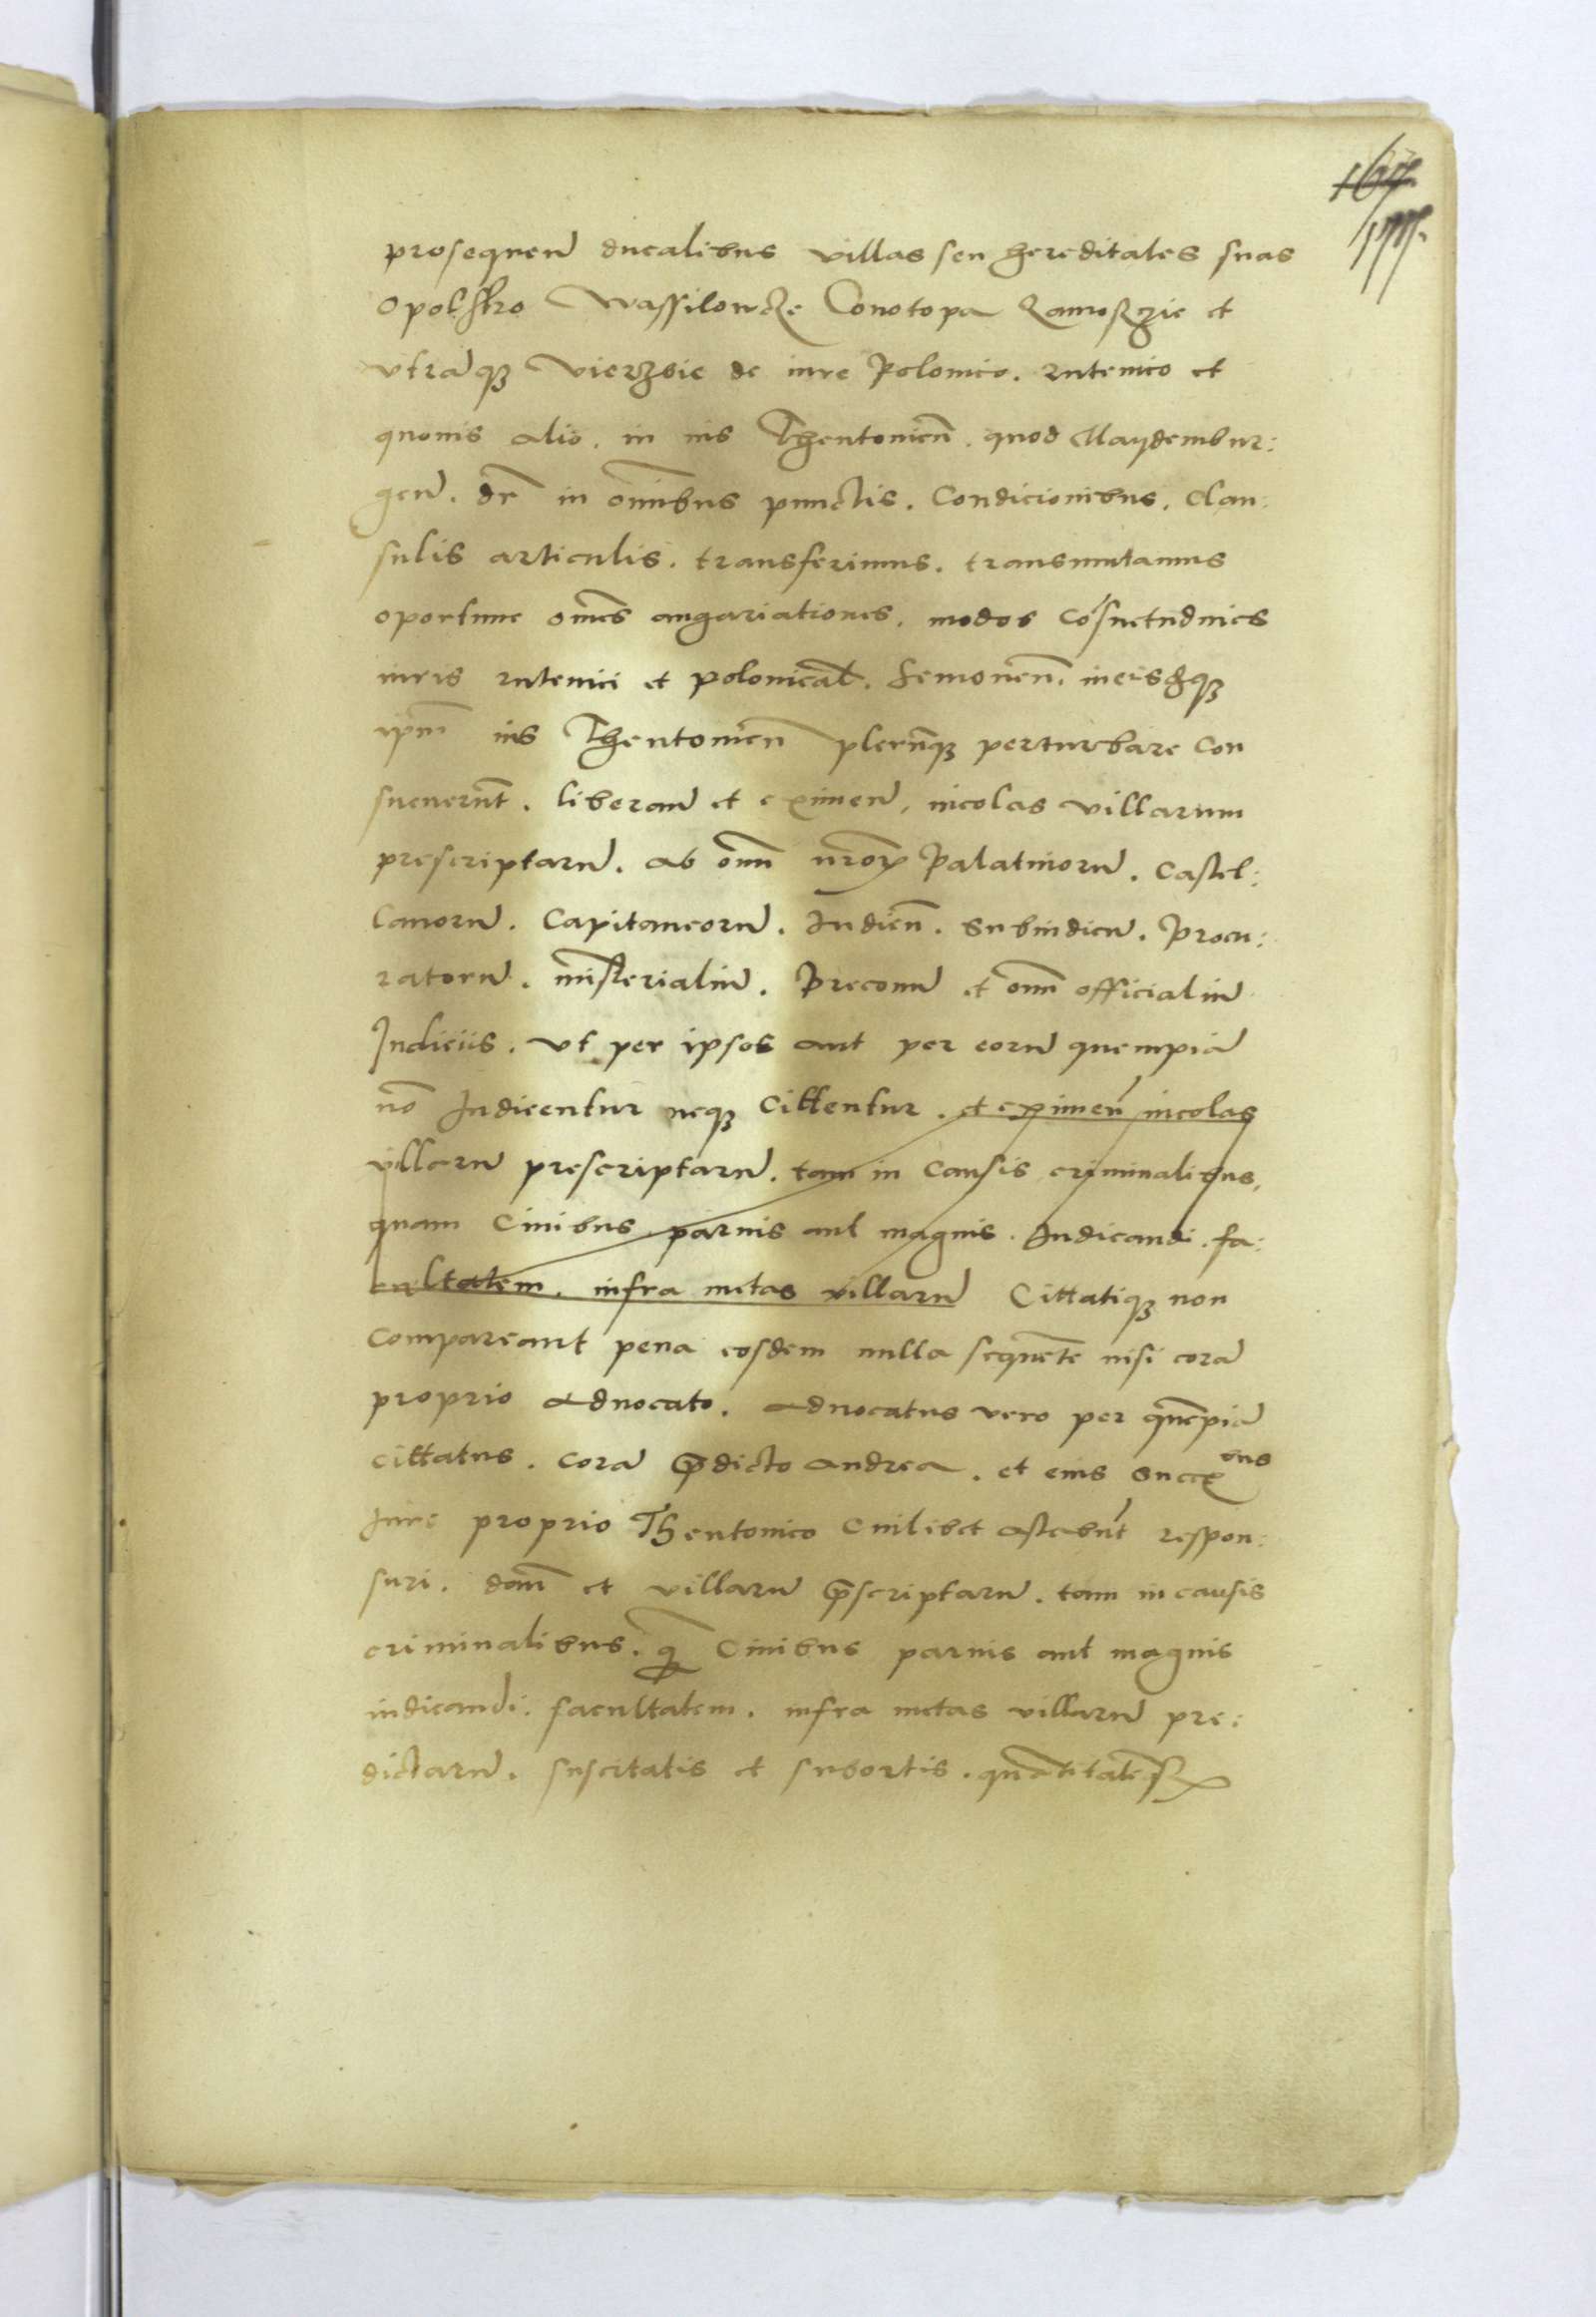 167.
177.
prosequen̄ ducalibus villas seu hereditates suas
Opolsko Wassilowcze Conotopa Zamosczie et
vtrāq; Vierzbie de iure Polonico. rutenico et
quouis alio. in ius Theutonicū. quod Maydembur:
gen̄. dr̄ in om̄ibus punctis. Condicionibus. Clau:
sulis articulis. transferimus. transmutamus
oportune om̄es angariationes. modos cōsuetudines
iuris rutenici et polonical. remouen̄.
ipm̄ ius Theutonicū plerūq; perturbare con
sueuerūt. liberan̄ et eximen̄, incolas villarum
prescriptarū. ab om̄i nr̄orꝫ Palatinorū. Castel:
lanorū. Capitaneorū. Iudicū. Subiudicū. Procu:
ratorū. mīsterialiū. Preconū et om̄i officialiū
Iudiciis. vt per ipsos aut per eorū quempiā
nō Iudicentur neq; Cittentur. et eximen̄ incolas
villarū prescriptarū. tam in causis criminalibus,
quam Ciuibus paruis aut magnis. Iudicandi. fa:
cultatem. infra metas villarū Cittatiq; non
compareant pena eosdem nulla sequēte nisi corā
proprio Aduocato. Aduocatus vero per quēpiā
cittatus. corā p̄dicto andrea. et eius succꝫbus
Iure proprio Theutonico Cuilibet astabūt respon:
suri. dam̄ et villarū p̄scriptarū. tam in causis
criminalibus. q̄ Ciuibus paruis aut magnis
iudicandi. facultatem. infra metas villarū pre:
dictarū. suscitatis et subortis.